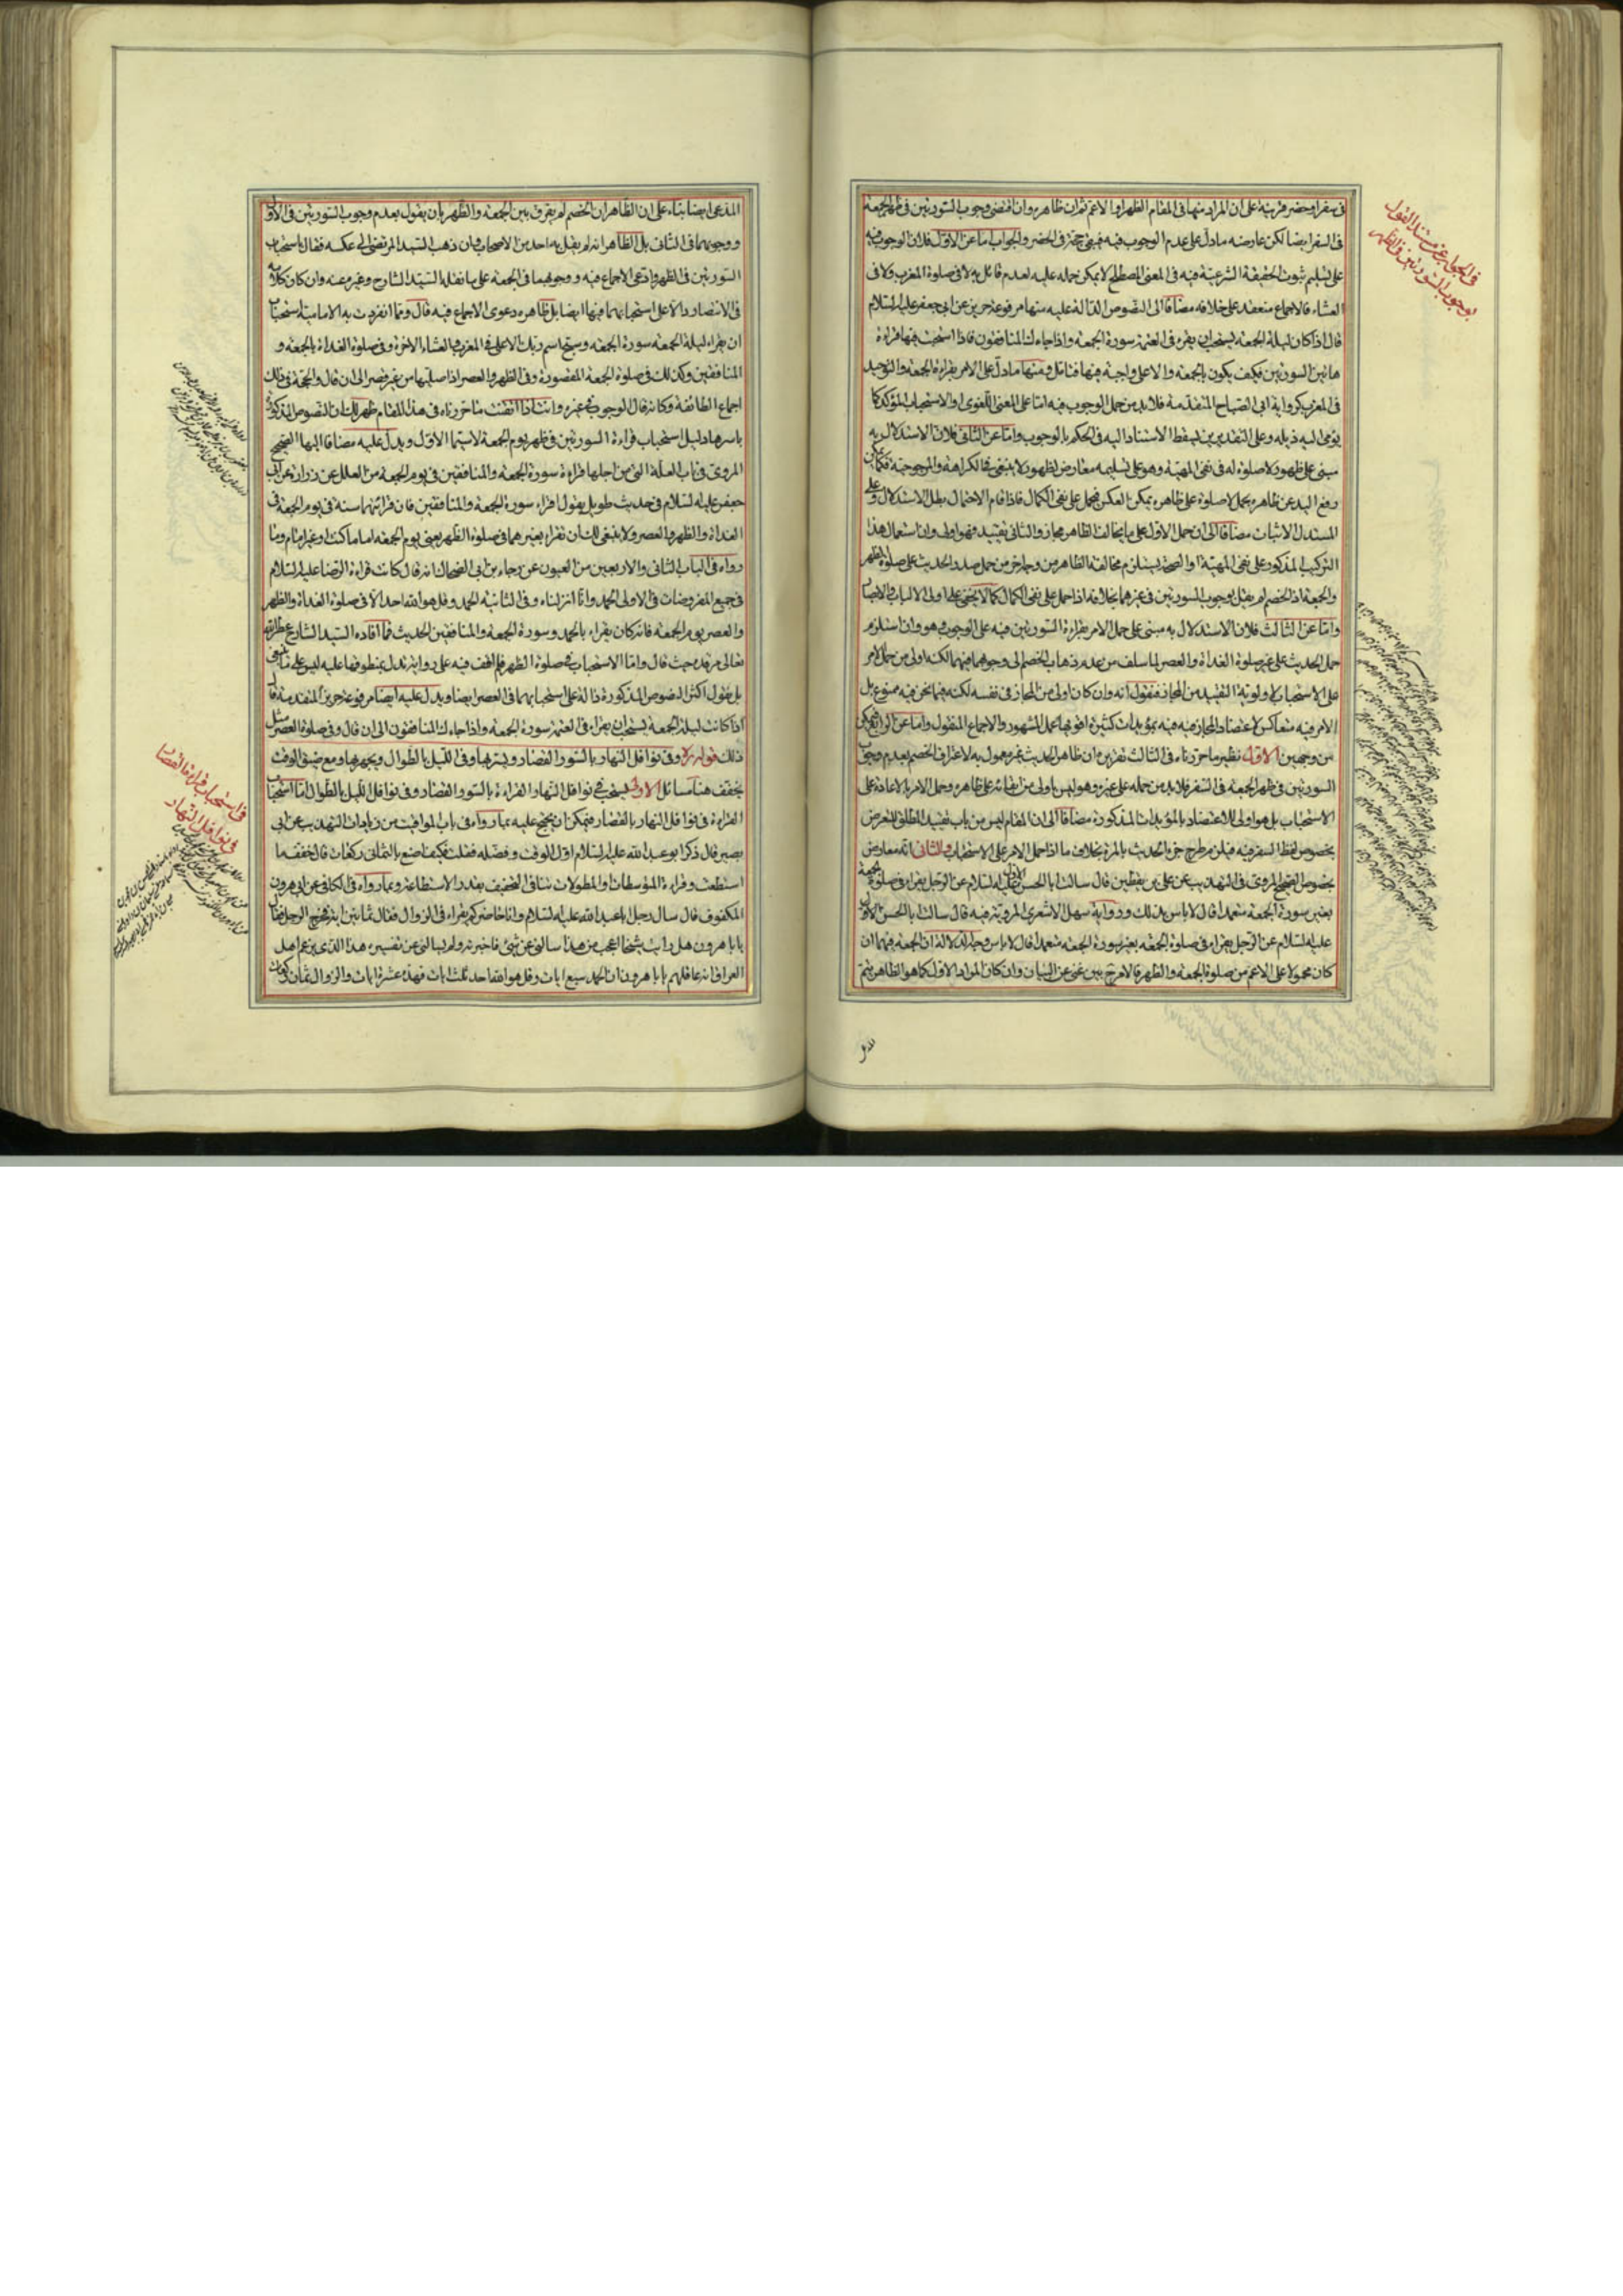 في سفر او حضر قرينة على ان المراد منها في المقام الظهر او الاعم ثم ان ظاهره وان اقتضى وجوب السورتين في ظهر الجمعة
في السفر ايضا لكن عارضه ما دل على عدم الوجوب فيه فيبقى حجة في الحضر والجواب اما عن الاول فلان الوجوب فيه
على تسليم ثبوت الحقيقة الشرعية فيه في المعنى المصطلح لا يمكن حمله عليه لعدم قائل به لا في صلوة المغرب ولا في
العشاء فالاجماع منعقد على خلافه مضافا الى النصوص الدالة عليه منها مرفوعة حريز عن ابي جعفر عليه السلام
قال اذا كان ليلة الجمعة يستحب ان يقرء في العتمة سورة الجمعة واذا جاءك المنافقون فاذا استحبت فيها قراءة
هاتين السورتين فكيف يكون بالجمعة والاعلى واجبة فيها فتامل ومنها ما دل على الامر بقراءة الجمعة والتوحيد
في المغرب كرواية ابي الصباح المتقدمة فلابد من حمل الوجوب فيه اما على المعنى اللغوى او الاستحباب المؤكد كما
يومى اليه ذيله وعلى التقديرين يسقط الاستناد اليه في الحكم بالوجوب واما عن الثاني فلان الاستدلال به
مبنى على ظهور لا صلوة له في نفى المهية وهو على تسليمه معارض لظهور لا ينبغى في الكراهة والمرجوحية فكما ان
رفع اليد عن ظاهره بحمل لا صلوة على ظاهره يمكن العكس فيحمل على نفى الكمال فاذا قام الاحتمال بطل الاستدلال وعلى
المستدل الاثبات مضافا الى ان حمل الاول على ما يخالف الظاهر مجاز والثاني تقييد فهو اولى وان استعمال هذا
التركيب المذكور على نفى المهية او الصحة يستلزم مخالفة الظاهر من وجه اخر من حمل صدر الحديث على صلوة الظهر
والجمعة اذ الخصم لم يقل بوجوب السورتين في غيرهما بخلافه اذا حمل على نفى الكمال كما لا يخفى على اولى الالباب والابصار
واما عن الثالث فلان الاستدلال به مبنى على حمل الامر بقراءة السورتين فيه على الوجوب وهو وان استلزم
حمل الحديث على غير صلوة الغداة والعصر لما سلف من عدم ذهاب الخصم الى وجوبهما فيهما لكنه اولى من حمل الامر
على الاستحباب لاولوية التقييد من المجاز فنقول انه وان كان اولى من المجاز في نفسه لكنه فيما نحن فيه ممنوع بل
الامر فيه متعاكس لاعتضاد المجاز فيه بمؤيدات كثيرة اقويها عمل المشهور والاجماع المنقول واما عن الرابع فيمكن
من وجهين الاول نظير ما حررناه في الثالث تقريره ان ظاهر الحديث غير معمول به لاعتراف الخصم بعدم وجوب
السورتين في ظهر الجمعة في السفر فلابد من حمله على غيره وهو ليس باولى من ابقائه على ظاهره وحمل الامر بالاعادة على
الاستحباب بل هو اولى للاعتضاد بالمؤيدات المذكورة مضافا الى ان المقام ليس من باب تقييد المطلق للتعرض
بخصوص لفظ السفر فيه فيلزم طرح جزء الحديث بالمرة بخلاف ما اذا حمل الامر على الاستحباب والثاني انه معارض
بخصوص الصحيح المروى في التهذيب عن علي بن يقطين قال سالت ابا الحسن عليه السلام عن الرجل يقرء في صلوة الجمعة
بغير سورة الجمعة متعمدا قال لا باس بذلك ورواية سهل الاشعرى المروية فيه قال سالت ابا الحسن الاول
عليه السلام عن الرجل يقرء في صلوة الجمعة بغير سورة الجمعة متعمدا قال لا باس وجه الدلالة ان الجمعة فيهما ان
كان محمولا على الاعم من صلوة الجمعة والظهر فالامر بين غنى عن البيان وان كان المراد الاول كما هو الظاهر يتم
في الجواب عن مستند القول
بوجوب السورتين في الظهر
المدعى ايضا بناء على ان الظاهر ان الخصم لم يفرق بين الجمعة والظهر بان يقول بعدم وجوب السورتين في الاول
ووجوبهما في الثاني بل الظاهر انه لم يقل به احد من الاصحاب فان ذهب السيد المرتضى الى عكسه فقال باستحباب
السورتين في الظهر وادعى الاجماع فيه ووجوبهما في الجمعة على ما نقله السيد الشارح وغيره عنه وان كان كلامه
في الانتصار دالا على استحبابهما فيها ايضا بل ظاهره دعوى الاجماع فيه قال ومما انفردت به الامامية استحباب
ان يقراء ليلة الجمعة سورة الجمعة وسبح اسم ربك الاعلى في المغرب والعشاء الاخرة وفي صلوة الغداة بالجمعة و
المنافقين وكذلك في صلوة الجمعة المقصورة وفي الظهر والعصر اذا صلاهما من غير قصر الى ان قال والحجة في ذلك
اجماع الطائفة وكانه قال الوجوب في غيره وانت اذا اتقنت ما حررناه في هذا المقام ظهر لك ان النصوص المذكورة
باسرها دليل استحباب قراءة السورتين في ظهر يوم الجمعة لا سيما الاول ويدل عليه مضافا اليها الصحيح
المروى في باب العلة التي من اجلها قراءة سورة الجمعة والمنافقين في يوم الجمعة من العلل عن زرارة عن ابي
جعفر عليه السلام في حديث طويل يقول اقراء سورة الجمعة والمنافقين فان قرائتهما سنة في يوم الجمعة في
الغداة والظهر والعصر ولا ينبغى لك ان تقراء بغيرهما في صلوة الظهر يعنى يوم الجمعة اماما كنت او غير امام وما
رواه في الباب الثاني والاربعين من العيون عن رجاء بن ابي الضحاك انه قال كانت قراءة الرضا عليه السلام
في جميع المفروضات في الاولى الحمد وانا انزلناه وفي الثانية الحمد وقل هو الله احد الا في صلوة الغداة والظهر
والعصر يوم الجمعة فانه كان يقراء بالحمد وسورة الجمعة والمنافقين الحديث فما افاده السيد الشارح عطر الله
تعالى مرقده حيث قال واما الاستحباب في صلوة الظهر فلم اقف فيه على رواية تدل بمنطوقها عليه ليس على ما ينبغى
بل نقول اكثر النصوص المذكورة دالة على استحبابهما في العصر ايضا ويدل عليه ايضا مرفوعة حريز المتقدمة قال
اذا كانت ليلة الجمعة يستحب ان يقراء في العتمة سورة الجمعة واذا جاءك المنافقون الى ان قال وفي صلوة العصر مثل
ذلك قوله وفي نوافل النهار بالسور القصار ويسر بها وفي الليل بالطوال ويجهر بها ومع ضيق الوقت
يخفف هنا مسائل الاولى يستحب في نوافل النهار القراءة بالسور القصار وفي نوافل الليل بالطوال اما استحباب
القراءة في نوافل النهار بالقصار فيمكن ان يحتج عليه بما رواه في باب المواقيت من زيادات التهذيب عن ابي
بصير قال ذكر ابو عبد الله عليه السلام اول الوقت وفضله فقلت فكيف اصنع بالثماني ركعات قال خفف ما
استطعت وقراءة المتوسطات او المطولات تنافي التخفيف بقدر الاستطاعة وبما رواه في الكافي عن ابي هرون
المكفوف قال سال رجل ابا عبد الله عليه السلام وانا حاضر كم يقراء في الزوال فقال ثمانين اية فخرج الرجل فقال
يا با هرون هل رايت شيخا اعجب من هذا سالني عن شئ فاخبرته ولم يسالني عن تفسيره هذا الذي يزعم اهل
العراق انه عاقلهم يا با هرون ان الحمد سبع ايات وقل هو الله احد ثلث ايات فهذه عشر ايات والزوال ثمان ركعات
في استحباب قراءة القصار
في نوافل النهار